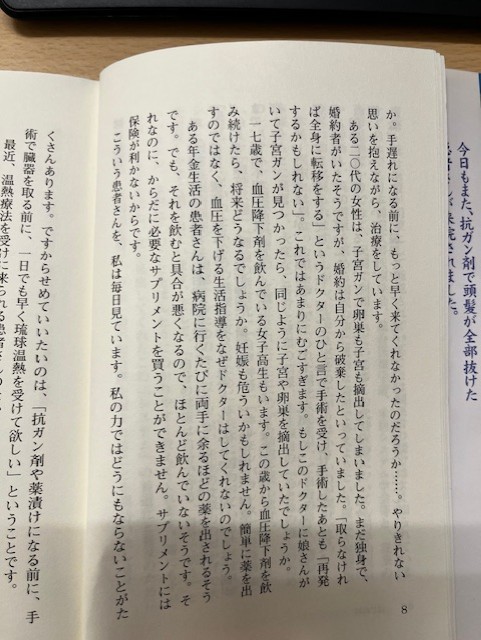 今日もまた、抗ガン剤で頭髪が全部抜けた
患者さんが来室されました。
か。手遅れになる前に、もっと早く来てくれなかったのだろうか……。やりきれない
思いを抱えながら、治療をしています。
ある二〇代の女性は、子宮ガンで卵巣も子宮も摘出してしまいました。まだ独身で、
婚約者がいたそうですが、婚約は自分から破棄したといっていました。「取らなけれ
ば全身に転移をする」というドクターのひと言で手術を受け、手術したあとも「再発
するかもしれない」。これではあまりにむごすぎます。もしこのドクターに娘さんが
いて子宮ガンが見つかったら、同じように子宮や卵巣を摘出していたでしょうか。
一七歳で、血圧降下剤を飲んでいる女子高生もいます。この歳から血圧降下剤を飲
み続けたら、将来どうなるでしょうか。妊娠も危ういかもしれません。簡単に薬を出
すのではなく、血圧を下げる生活指導をなぜドクターはしてくれないのでしょう。
ある年金生活の患者さんは、病院に行くたびに両手に余るほどの薬を出されるそう
です。でも、それを飲むと具合が悪くなるので、ほとんど飲んでいないそうです。そ
れなのに、からだに必要なサプリメントを買うことができません。サプリメントには
保険が利かないからです。
こういう患者さんを、私は毎日見ています。私の力ではどうにもならないことがた
8
くさんあります。ですからせめていいたいのは、「抗ガン剤や薬漬けになる前に、手
術で臓器を取る前に、一日でも早く琉球温熱を受けて欲しい」ということです。
最近、温熱療法を受けに来られる患者さんの